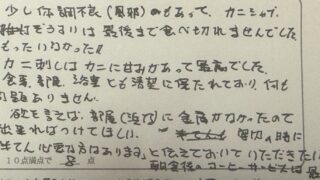 少し体調不良(風邪)のもあって、カニシャブ、
ぞうすいは最後まで食べ切れませんでした。
もったいなかった!!
カニ刺しはカニに甘みがあって最高でした。
食事、部屋、浴室とも清潔に保たれており、何も
問題ありません。
欲を言えば、部屋に金庫がなかったので
出来ればつけてほしい。 の時に
心配な方はあります。と伝えておいていただきたい
10点満点で 8 点
朝食後のコーヒーサービスは